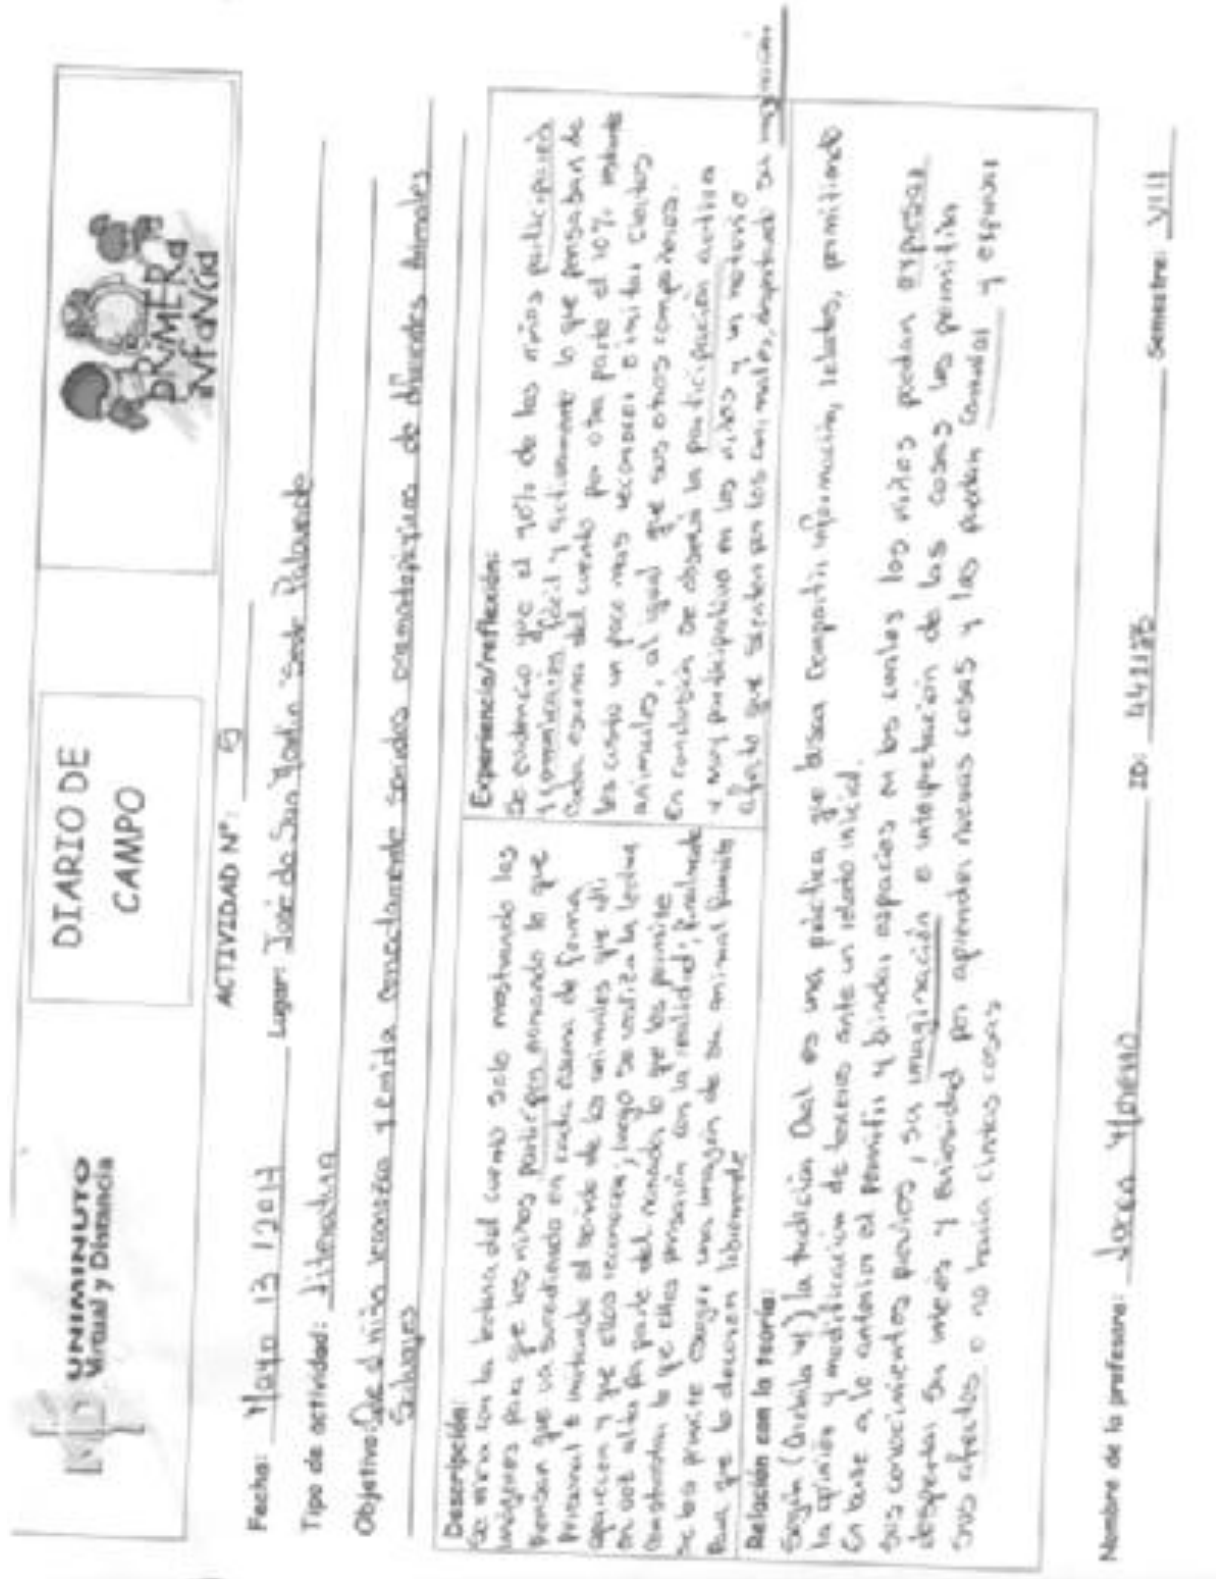 UNIMINUTO
Virtual y Distancia
DIARIO DE
CAMPO
PRIMERA
INFANCIA
ACTIVIDAD N°:
Fecha: Mayo 13 / 2017 Lugar: José de San Martin "Sede
Tipo de actividad: Literatura
Objetivo: Que el niño reconozca y emita correctamente sonidos onomatopéyicos de diferentes Animales
Salvajes
Descripción:
Se inicia con la lectura del cuento solo mostrando las
imágenes para que los niños participen narrando lo que
piensan que va sucediendo en cada escena de forma
e imitando el sonido de los animales que allí
aparecen y que ellos reconocen; luego se realiza la lectura
en voz alta por parte del lo que les permite
lo que ellos pensaron con la realidad; finalmente
se les permite escoger una imagen de su animal favorito
Para que lo decoren libremente
Experiencia/reflexión:
Se evidencio que el 90% de los niños participara
y fácil y activamente lo que pensaban de
cada escena del cuento por otra parte el 10% restante
les costo un poco mas reconocer e imitar ciertos
animales, al igual que sus otros compañeros.
En conclusión se observó la participación activa
y muy participativa en los niños y un notorio
que sienten por los animales, despertando su imaginación
Relación con la teoría:
Según ( ) la tradición Oral es una práctica que busca compartir información, relatos, permitiendo
la opinión y modificación de terceros ante un relato inicial.
En base a lo anterior el permitir y brindar espacios en los cuales los niños puedan expresar
sus conocimientos previos, su imaginación e interpretación de las cosas les permitira
despertar su interes y curiosidad por aprender nuevas cosas y las puedan contar y expresar
sus afectos o no hacia ciertas cosas
Nombre de la profesora: Moreno ID: 441128 Semestre: VIII